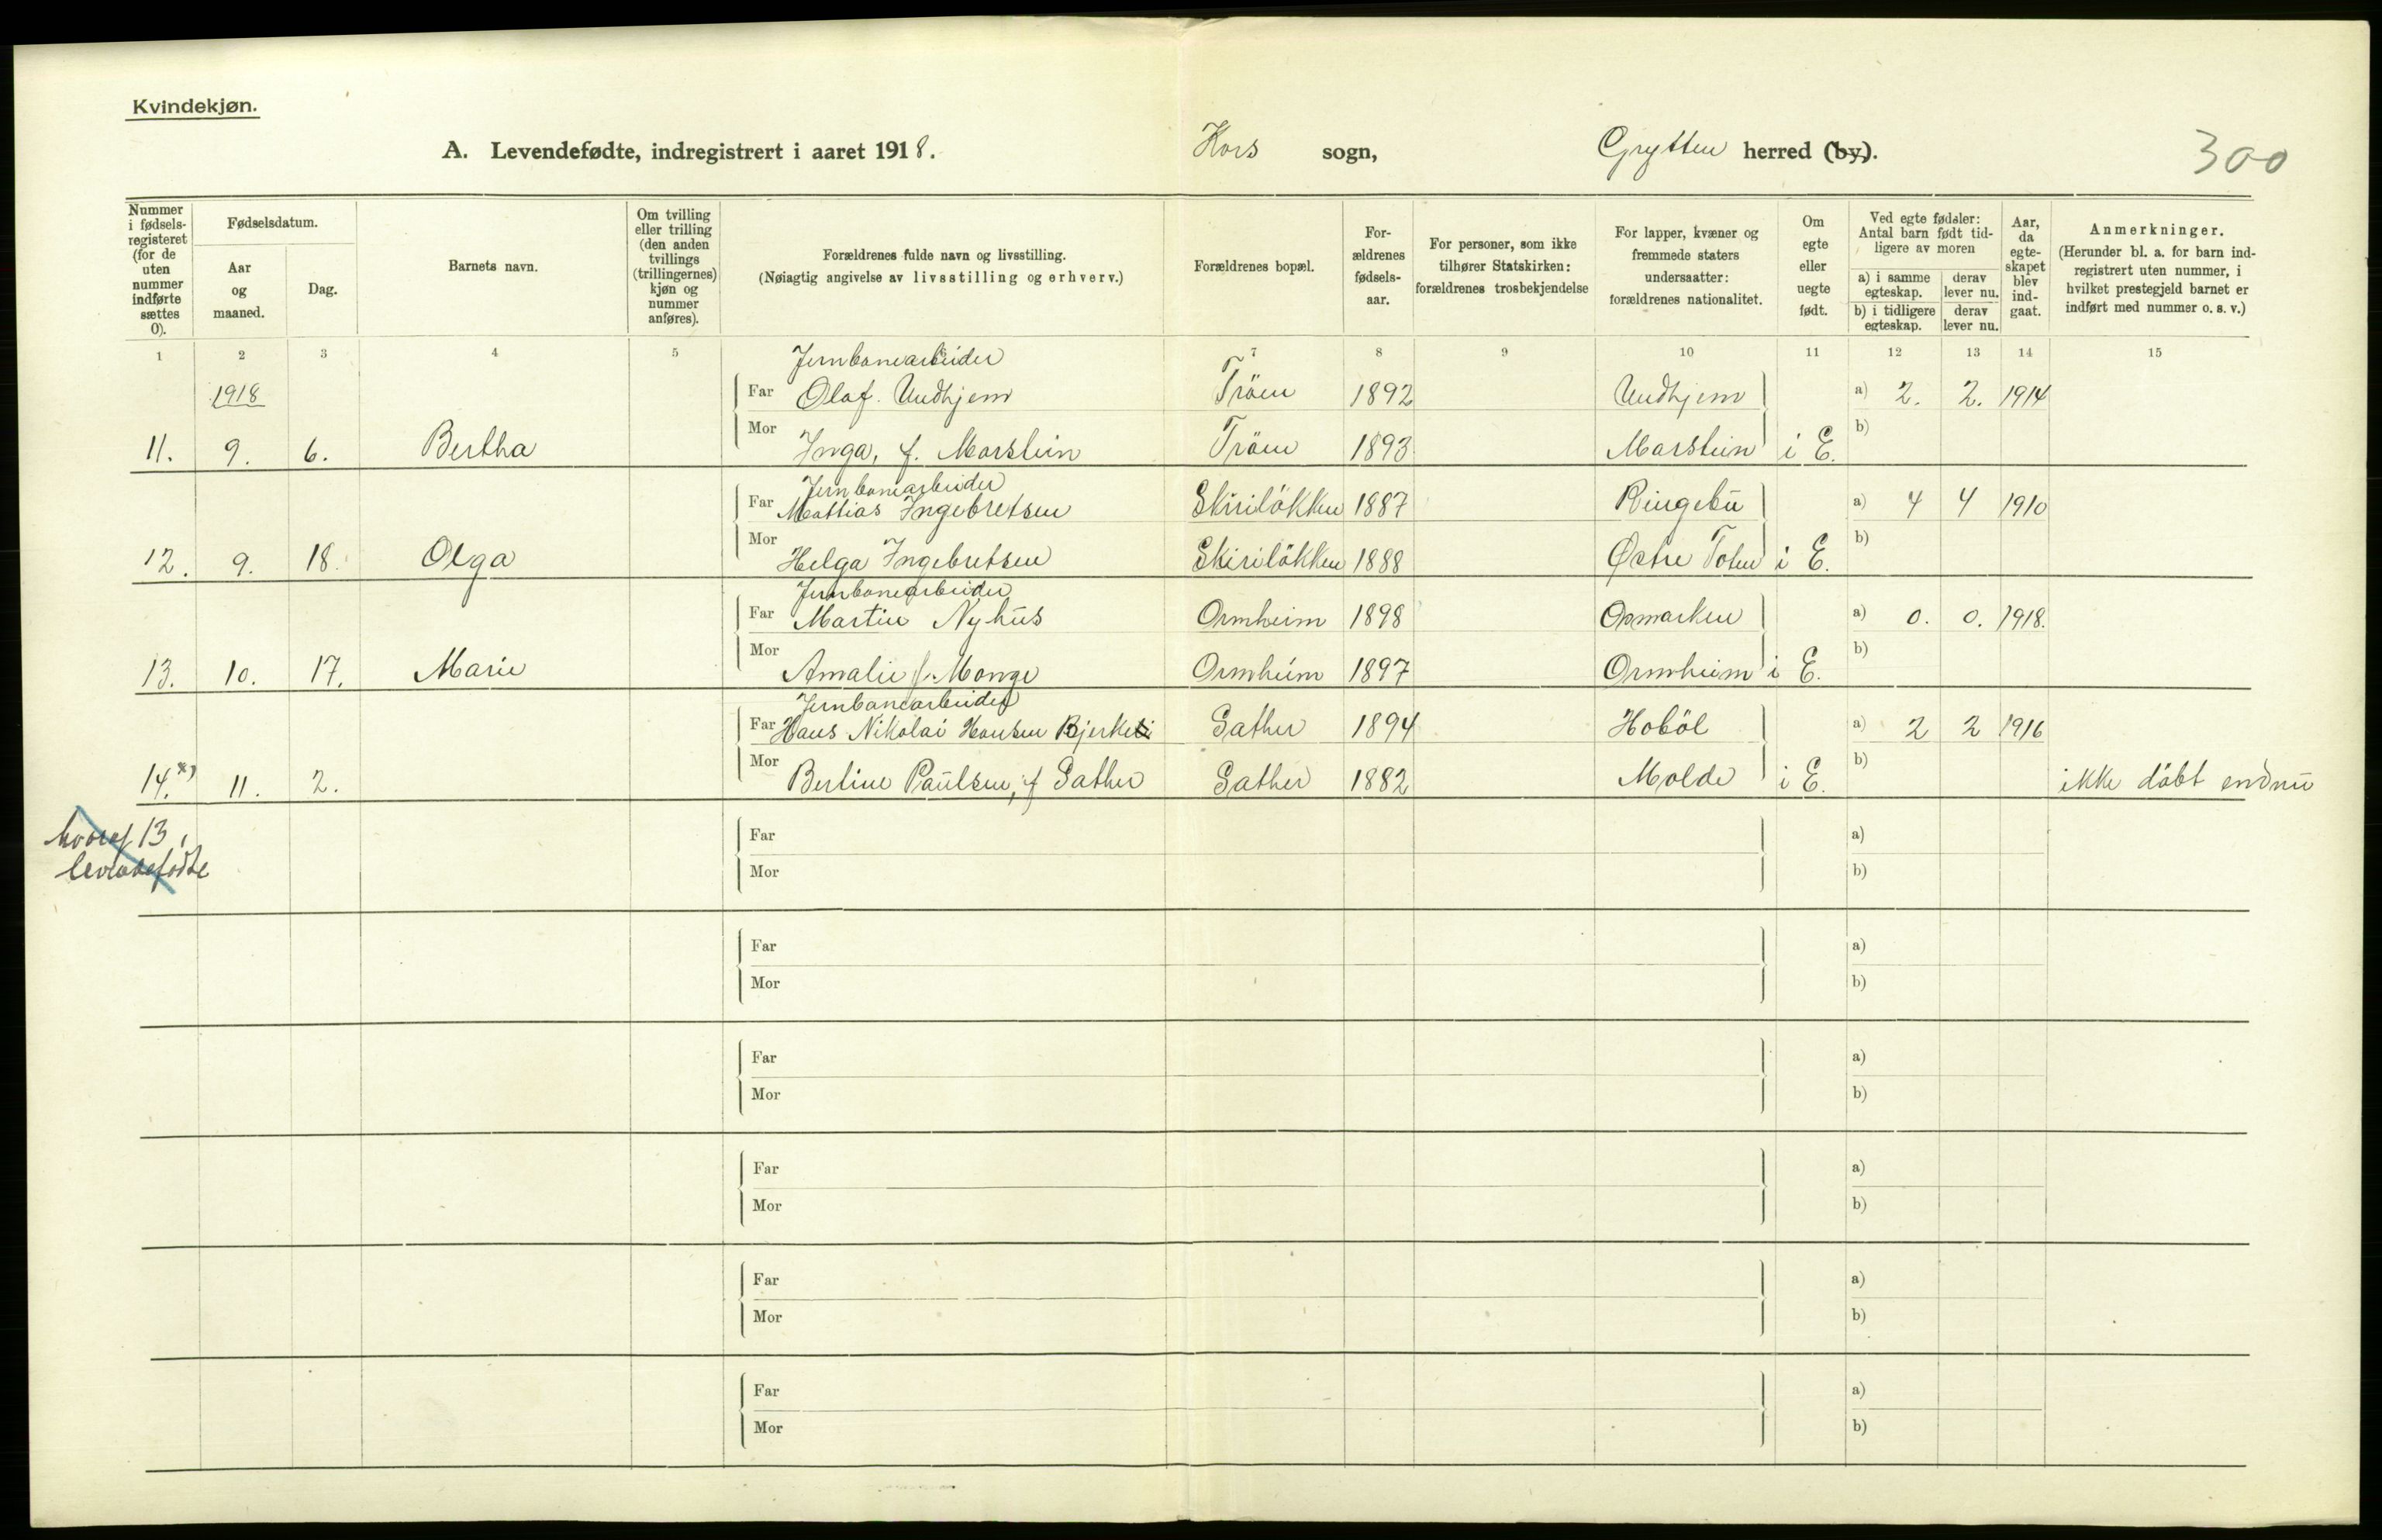 Kvindekjøn.
A. Levendefødte, indregistrert i aaret 1918. Kors sogn, Grytten herred (by).
300
Nummer i fødselsregisteret (for de uten nummer indførte sættes 0).
Fødselsdatum.
Aar og maaned.
Dag.
Barnets navn.
Om tvilling eller trilling (den anden tvillings (trillingernes) kjøn og nummer anføres).
Forældrenes fulde navn og livsstilling.
(Nøiagtig angivelse av livsstilling og erhverv.)
Forældrenes bopæl.
Forældrenes fødselsaar.
For personer, som ikke tilhører Statskirken: forældrenes trosbekjendelse
For lapper, kvæner og fremmede staters undersaatter: forældrenes nationalitet.
Om egte eller uegte født.
Ved egte fødsler: Antal barn født tidligere av moren
a) i samme egteskap. derav lever nu.
b) i tidligere egteskap. derav lever nu.
Aar, da egteskapet blev indgaat.
Anmerkninger.
(Herunder bl. a. for barn indregistrert uten nummer, i hvilket prestegjeld barnet er indført med nummer o. s. v.)
1 2 3 4 5 7 8 9 10 11 12 13 14 15
Jernbanearbeider
1918 Far Olaf. Undhjem Tröen 1892 Undhjem a) 2. 2. 1914
11. 9. 6. Bertha Mor Inga, f. Marstein Tröen 1893 Marstein i E. b)
Jernbanearbeider
Far Mattias Ingebretsen Skirilökken 1887 Ringebu a) 4 4 1910
12. 9. 18. Olga Mor Helga Ingebretsen Skirilökken 1888 Østre Toten i E. b)
Jernbanearbeider
Far Martin Nyhus Ormheim 1898 a) 0. 0. 1918.
13. 10. 17. Marie Mor Amalie f. Monge Ormheim 1897 Ormheim i E. b)
Jernbanearbeider
Far Hans Nikolai Hansen Bjerkeli Sather 1894 Hoböl a) 2 2 1916
14. *) 11. 2. Mor Bertine Paulsen, f Sather Sather 1882 Molde i E. b) ikke döbt endnu
hvoraf 13
levendefødte
Far a)
Mor b)
Far a)
Mor b)
Far a)
Mor b)
Far a)
Mor b)
Far a)
Mor b)
Far a)
Mor b)